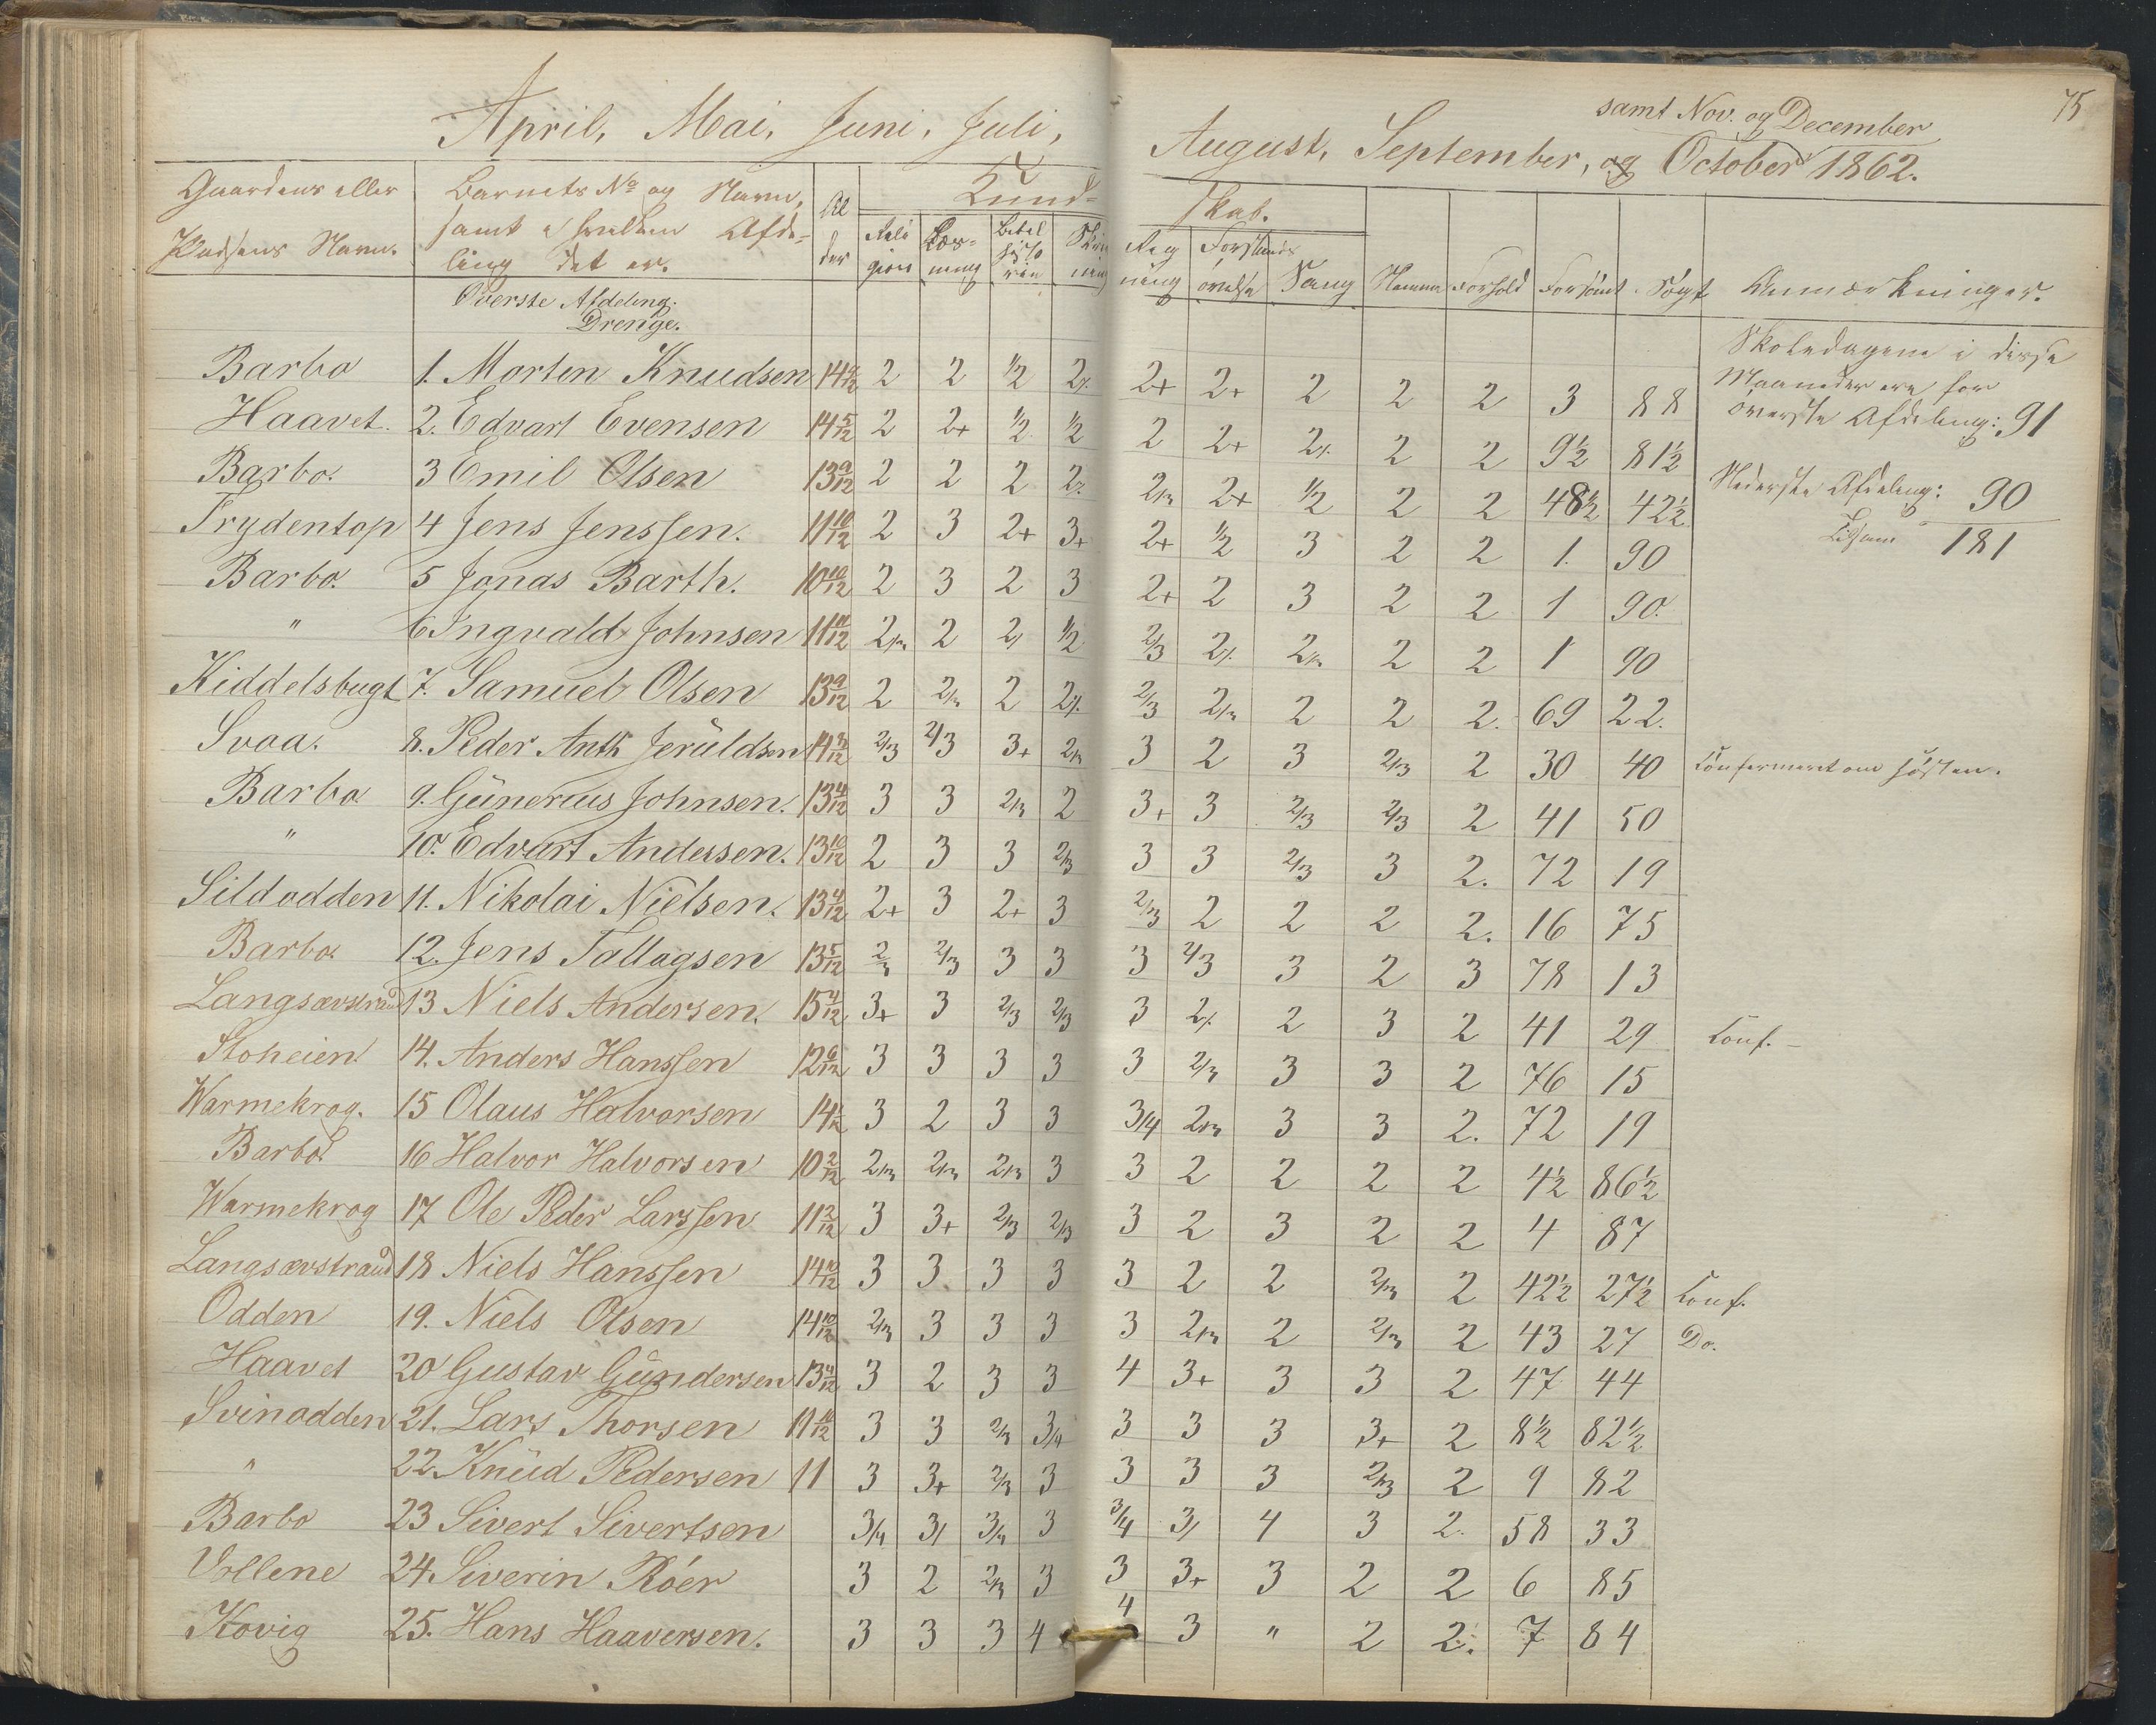 75
samt Nov. og December
April, Mai, Juni, Juli, August, September, og October 1862.
Gaardens eller Pladsens Navn. Barnets No og Navn, samt i hvilken Afdeling det er. Alder Kundskab. Anmærkninger.
Religion Læsning Bibelhistorie Skrivning Regning Forstandsøvelse Sang Nemme Forhold Forsömt Sögt
Överste Afdeling.
Drenge.
Skoledagene i disse
Maaneder ere for
överste Afdeling: 91
Nederste Afdeling: 90
Tilsam. 181
Barbo 1. Morten Knudsen 2 2 1/2 2/. 2+ 2+ 2 2 2 3 88
Haavet. 2. Edvart Evensen 14 5/12 2 2+ 1/2 1/2 2 2+ 2/. 2 2 9½ 81½
Barbo. 3 Emil Olsen 13 9/12 2 2 2 2/. 2/3 2+ 1/2 2 2 48½ 42½
Frydentop 4 Jens Jenssen. 11 10/12 2 3 2+ 3+ 2+ 1/2 3 2 2 1. 90
Barbo. 5 Jonas Barth. 10 10/12 2 3 2 3 2+ 2 3 2 2 1 90.
" 6 Ingvald Johnsen 2/3 2 2/ 1/2 2/3 2/. 2/3 2 2 1 90
Kiddelsbugt 7. Samuel Olsen 13 9/12 2 2/3 2 2/. 2/3 2/3 2 2 2. 69 22.
Svaa. 8. Peder Anth Jeruldsen 2/3 2/3 3+ 2/3 3 2 3 2/3 2 30 40 Confirmeret om hösten.
Barbo 9. Günerius Johnsen. 13 4/12 3 3 2/3 2 3+ 3 2/3 2/3 2 41 50
" 10. Edvart Andersen. 13 10/12 2 3 3 2/3 3 3 2/3 3 2. 72 19
Sildodden 11. Nikolai Nielsen. 13 4/12 2+ 3 2+ 3 2/3 2 2 2 2. 16 75
Barbo. 12. Jens Tallagsen 13 5/12 2/3 2/3 3 3 3 2/3 3 2 3 78 13
Langsævstrand 13 Niels Andersen. 15 4/12 3+ 3 2/3 2/3 3 2/. 2 3 2 41 29 Conf. –
Stoheien. 14. Anders Hanssen 12 6/12 3 3 3 3 3 2/3 3 3 2 76 15
Warmekrog. 15 Olaus Halvorsen 3 2 3 3 3/4 2/3 3 3 2. 72 19
Barbo. 16 Halvor Halvorsen 10 2/12 2/3 2/3 2/3 3 3 2 2 2 2 4½ 86½
Warmekrog 17 Ole Peder Larssen 11 2/12 3 3+ 2/3 2/3 3 2 3 2 2 4 87
Langsævstrand 18 Niels Hanssen 14 10/12 3 3 3 3 3 2 2 2/3 2 42½ 27½ Conf.
Odden 19. Niels Olsen 14 10/12 2/3 3 3 3 3 2/3 2 2/3 2 43 27 Do.
Haavet 20 Gustav Gündersen 13 4/12 3 2 3 3 4 3+ 3 3 2 47 44
Svinodden 21. Lars Thorsen 11 10/12 3 3 2/3 3/4 3 3 3 3+ 2 8½ 82½
" 22. Knüd Pedersen 11 3 3+ 2/3 3 3 3 3 2/3 2 9 82
Barbo 23 Sivert Sivertsen 3/4 3/ 3/4 3 3/4 3/ 4 3 2. 58 33
Vollene 24. Siverin Róer 3 2 2/3 3 3 3+ 3 2 2 6 85
Kovig 25. Hans Haaversen. 3 3 3 4 4 3 " 2 2. 7 84